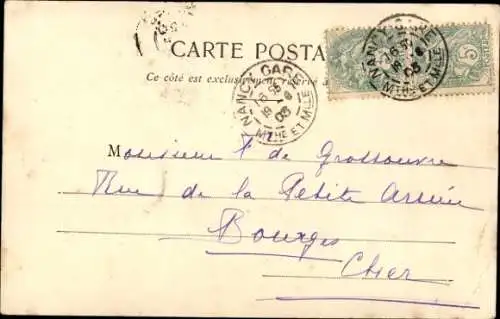 CARTE POSTA
Ce côté est exclusivement réservé à
NANCY GARE
18 1 03
MTHE ET MLLE
NANCY GARE
18 1 03
MTHE ET MLLE
5
M
Monsieur F de Grossouvre
Rue de la Petite Armée
Bourges
Cher